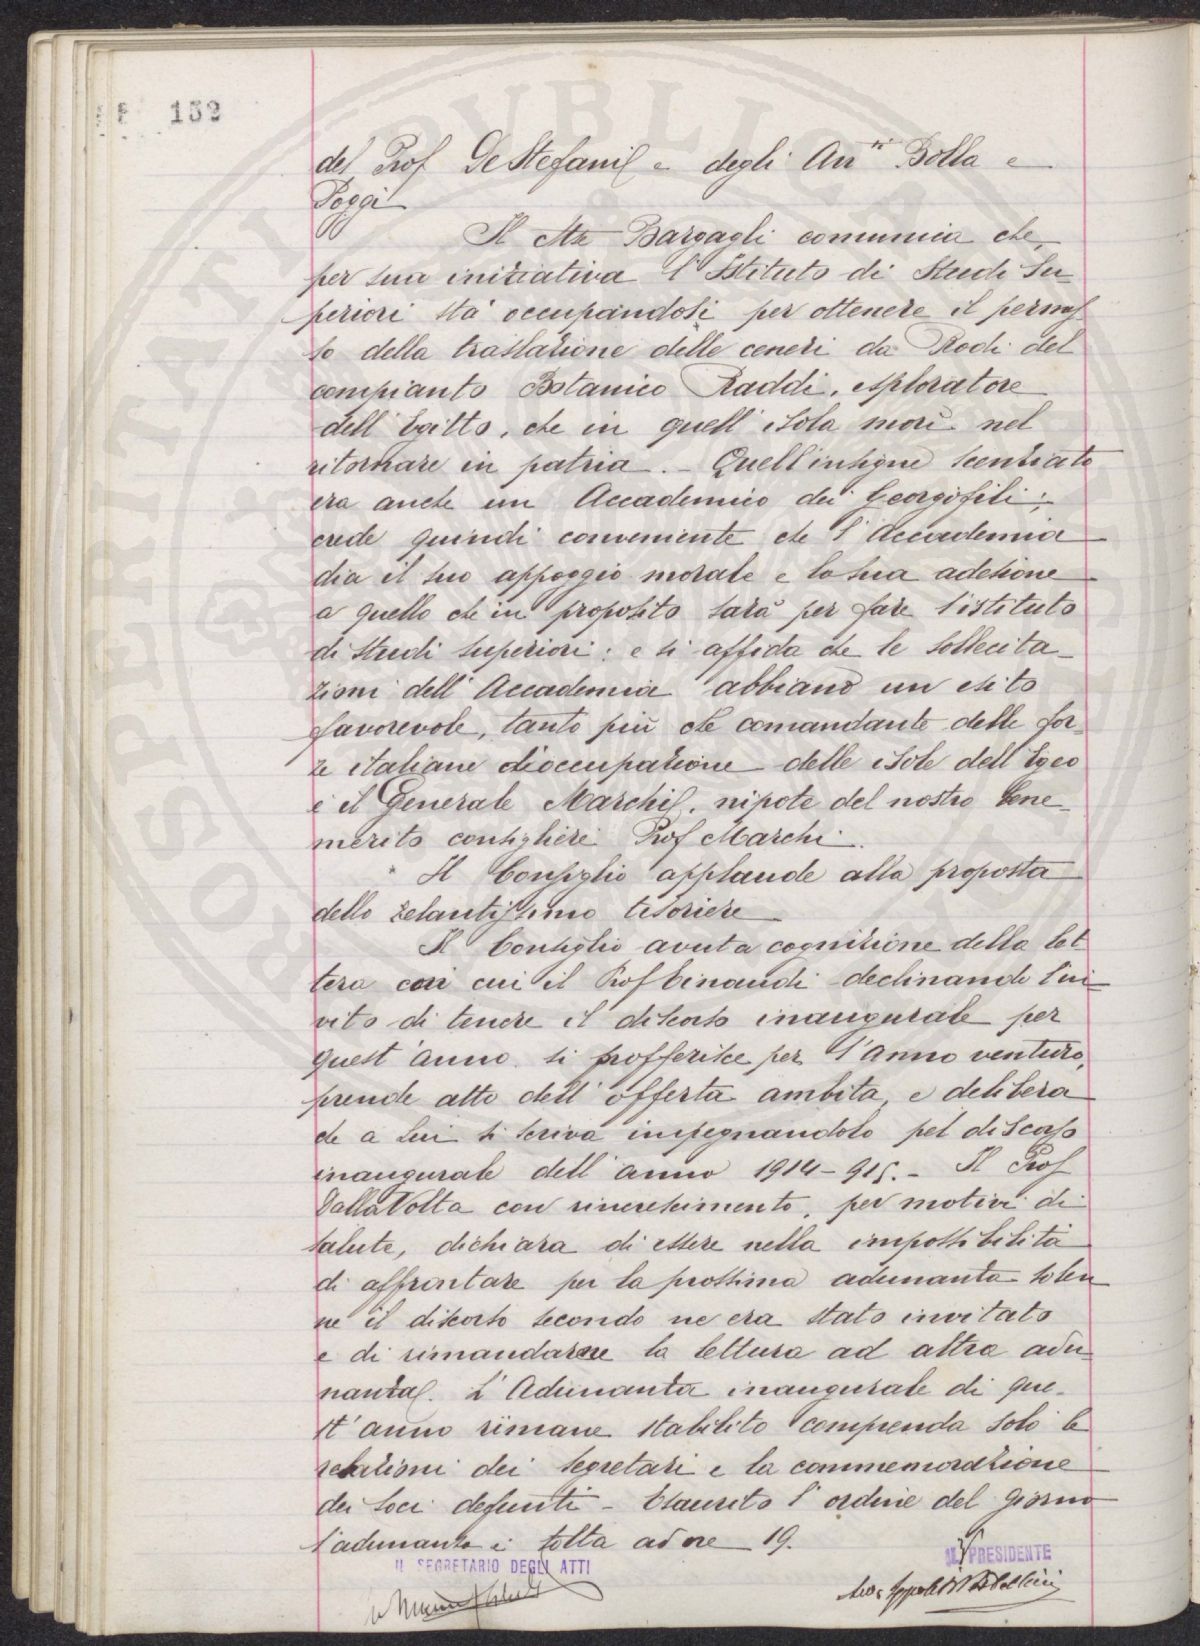 152
del Prof De Stefanis e degli Avv.ti Bolla e
Poggi
Il Mse Bargagli comunica che,
per sua iniziativa l'Istituto di Studi Su-
periori sta' occupandosi per ottenere il permes
so della traslazione delle ceneri da Rodi del
compianto Botanico Raddi, esploratore
dell'Egitto, che in quell'isola morì nel
ritornare in patria. - Quell'insigne scenziato
era anche un Accademico dei Georgofili;
crede quindi conveniente che l'Accademia
dia il suo appoggio morale e la sua adesione
a quello che in proposito sarà per fare l'istituto
di studi superiori: e si affida che le sollecita-
zioni dell'Accademia abbiano un esito
favorevole, tanto più che comandante delle for-
ze italiane d'occupazione delle isole dell'Egeo
è il Generale Marchi, nipote del nostro bene-
merito consigliere Prof Marchi.
Il Consiglio applaude alla proposta
dello zelantissimo tesoriere
Il Consiglio avuta cognizione della let
tera con cui il Prof Einaudi declinando l'in-
vito di tenere il discorso inaugurale per
quest'anno si profferisce per l'anno venturo,
prende atto dell'offerta ambita, e delibera
che a lui si scriva impegnandolo pel discorso
inaugurale dell'anno 1914-915. - Il Prof
Dalla Volta con rincrescimento, per motivi di
salute, dichiara di essere nella impossibilità
di affrontare per la prossima adunanza solen
ne il discorso secondo ne era stato invitato
e di rimandarne la lettura ad altra adu-
nanza. L'Adunanza inaugurale di que-
st'anno rimane stabilito comprenda solo le
relazioni dei segretari e la commemorazione
dei soci defunti - Esaurito l'ordine del giorno
l'adunanza è tolta ad ore 19.
IL SEGRETARIO DEGLI ATTI
IL PRESIDENTE